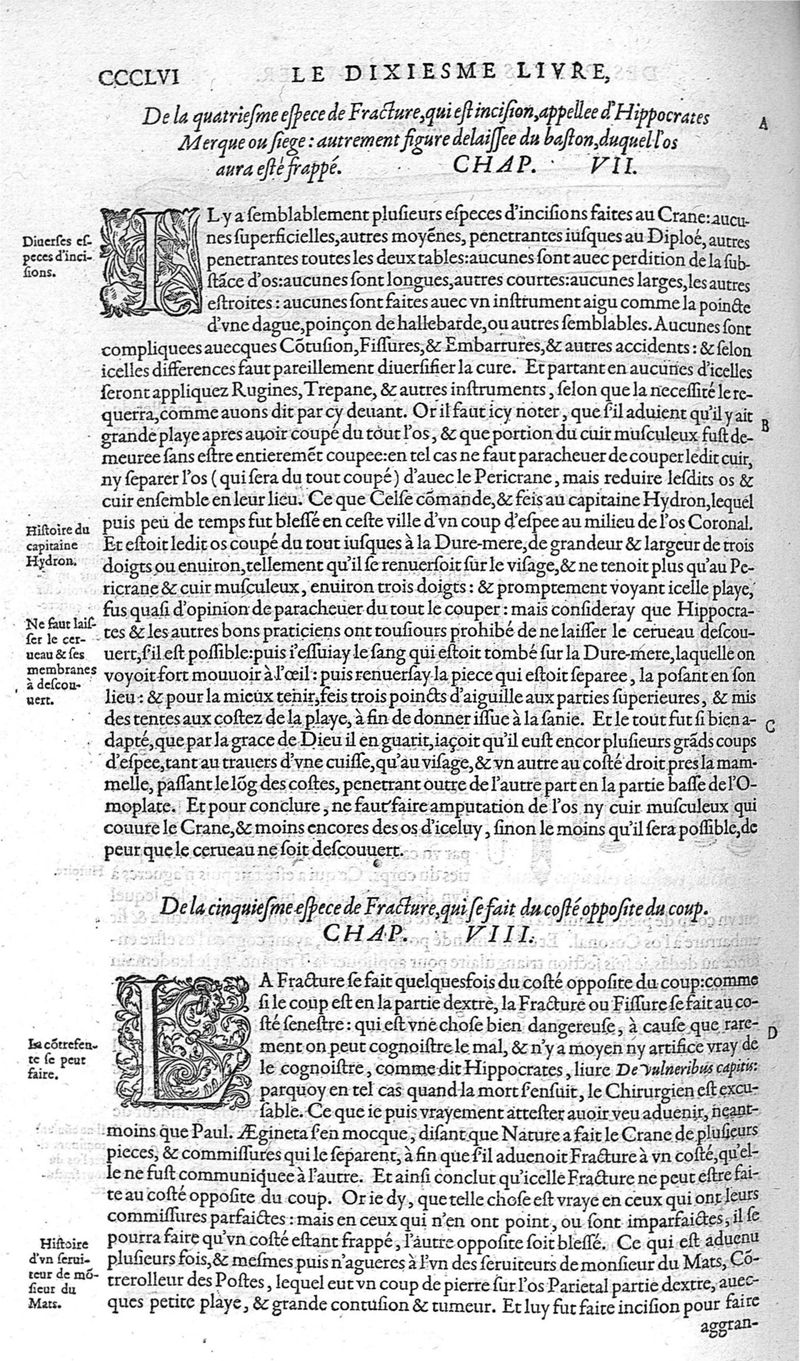 CCCLVI LE DIXIESME LIVRE,
De la quatriesme espece de Fracture, qui est incision, appellee d'Hippocrates
A
Merque ou siege: autrement figure delaissee du baston, duquel l'os
aura esté frappé. CHAP. VII.
Diuerses es-
peces d'inci-
sions.
IL y a semblablement plusieurs especes d'incisions faites au Crane: aucu-
nes superficielles, autres moyẽnes, penetrantes iusques au Diploé, autres
penetrantes toutes les deux tables: aucunes sont auec perdition de la sub-
stãce d'os: aucunes sont longues, autres courtes: aucunes larges, les autres
estroites: aucunes sont faites auec vn instrument aigu comme la poincte
d'vne dague, poinçon de hallebarde, ou autres semblables. Aucunes sont
compliquees auecques Cõtusion, Fissures, & Embarrures, & autres accidents: & selon
icelles differences faut pareillement diuersifier la cure. Et partant en aucunes d'icelles
seront appliquez Rugines, Trepane, & autres instruments, selon que la necessité le re-
querra, comme auons dit par cy deuant. Or il faut icy noter, que s'il aduient qu'il y ait
B
grande playe apres auoir coupé du tout l'os, & que portion du cuir musculeux fust de-
meuree sans estre entieremẽt coupee: en tel cas ne faut paracheuer de couper ledit cuir,
ny separer l'os (qui sera du tout coupé) d'auec le Pericrane, mais reduire lesdits os &
cuir ensemble en leur lieu. Ce que Celse cõmande, & feis au capitaine Hydron, lequel
Histoire du
capitaine
Hydron.
puis peu de temps fut blessé en ceste ville d'vn coup d'espee au milieu de l'os Coronal.
Et estoit ledit os coupé du tout iusques à la Dure-mere, de grandeur & largeur de trois
doigts ou enuiron, tellement qu'il se renuersoit sur le visage, & ne tenoit plus qu'au Pe-
ricrane & cuir musculeux, enuiron trois doigts: & promptement voyant icelle playe,
fus quasi d'opinion de paracheuer du tout le couper: mais consideray que Hippocra-
Ne faut lais-
ser le cer-
ueau & ses
membranes
à descou-
uert.
tes & les autres bons praticiens ont tousiours prohibé de ne laisser le cerueau descou-
uert, s'il est possible: puis i'essuiay le sang qui estoit tombé sur la Dure-mere, laquelle on
voyoit fort mouuoir à l'œil: puis renuersay la piece qui estoit separee, la posant en son
lieu: & pour la mieux tenir, feis trois poincts d'aiguille aux parties superieures, & mis
des tentes aux costez de la playe, à fin de donner issue à la sanie. Et le tout fut si bien a-
C
dapté, que par la grace de Dieu il en guarit, iaçoit qu'il eust encor plusieurs grãds coups
d'espee, tant au trauers d'vne cuisse, qu'au visage, & vn autre au costé droit pres la mam-
melle, passant le lõg des costes, penetrant outre de l'autre part en la partie basse de l'O-
moplate. Et pour conclure, ne faut faire amputation de l'os ny cuir musculeux qui
couure le Crane, & moins encores des os d'iceluy, sinon le moins qu'il sera possible, de
peur que le cerueau ne soit descouuert.
De la cinquiesme espece de Fracture, qui se fait du costé opposite du coup.
CHAP. VIII.
LA Fracture se fait quelquesfois du costé opposite du coup: comme
si le coup est en la partie dextre, la Fracture ou Fissure se fait au co-
sté senestre: qui est vne chose bien dangereuse, à cause que rare-
D
La cõtrefen-
te se peut
faire.
ment on peut cognoistre le mal, & n'y a moyen ny artifice vray de
le cognoistre, comme dit Hippocrates, liure De Vulneribus capitis:
parquoy en tel cas quand la mort s'ensuit, le Chirurgien est excu-
sable. Ce que ie puis vrayement attester auoir veu aduenir, neant-
moins que Paul. Ægineta s'en mocque, disant que Nature a fait le Crane de plusieurs
pieces, & commissures qui le separent, à fin que s'il aduenoit Fracture à vn costé, qu'el-
le ne fust communiquee à l'autre. Et ainsi conclut qu'icelle Fracture ne peut estre fai-
te au costé opposite du coup. Or ie dy, que telle chose est vraye en ceux qui ont leurs
commissures parfaictes: mais en ceux qui n'en ont point, ou sont imparfaictes, il se
pourra faire qu'vn costé estant frappé, l'autre opposite soit blessé. Ce qui est aduenu
Histoire
d'vn serui-
teur de mõ-
sieur du
Mats.
plusieurs fois, & mesmes puis n'agueres à l'vn des seruiteurs de monsieur du Mats, Cõ-
trerolleur des Postes, lequel eut vn coup de pierre sur l'os Parietal partie dextre, auec-
ques petite playe, & grande contusion & tumeur. Et luy fut faite incision pour faire
aggran-